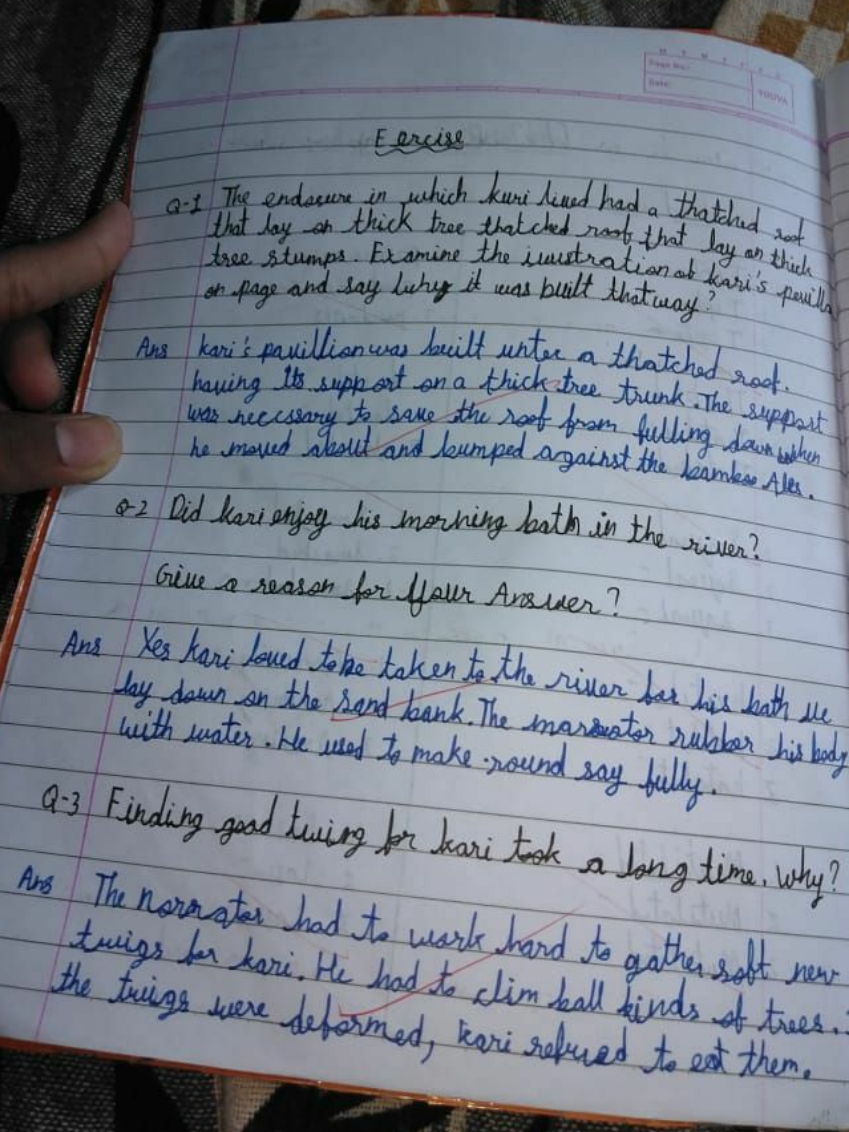 M T W T F S S
Page No.:
Date:
YOUVA
Eercise
Q-1 The enclosure in which kari lived had a thatched roof
that lay on thick tree thatched roof that lay on thick
tree stumps. Examine the iuustration of kari's pavilla
on page and say why it was built that way?
Ans kari's pavillion was built unter a thatched roof.
having Its support on a thick tree trunk. The support
was neccssary to save the roof from fulling down when
he moved about and bumped against the bamboo Ales.
Q-2 Did kari enjoy his morning bath in the river?
Give a reason for Your Answer?
Ans Yes kari loved to be taken to the river for his bath He
lay down on the sand bank. The rubber his body
with water. He used to make round say fully.
Q-3 Finding good twing for kari took a long time. Why?
Ans The norrator had to work hard to gather soft new
twigs for kari. He had to clim ball kinds of trees.
the twigs were deformed, kari refused to eat them.